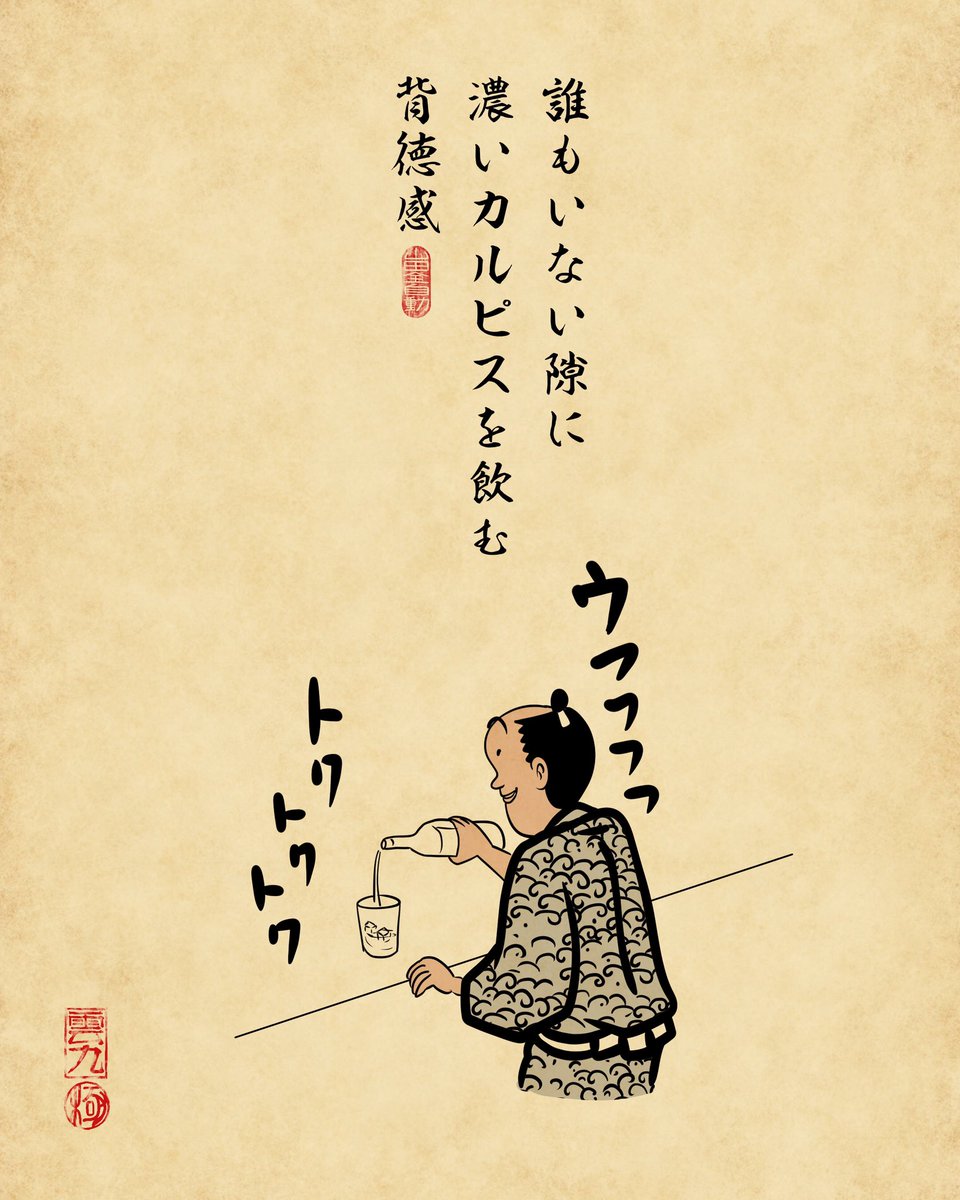 誰もいない隙に
濃いカルピスを飲む
背徳感
ウフフフフッ
トクトクトク
雲九